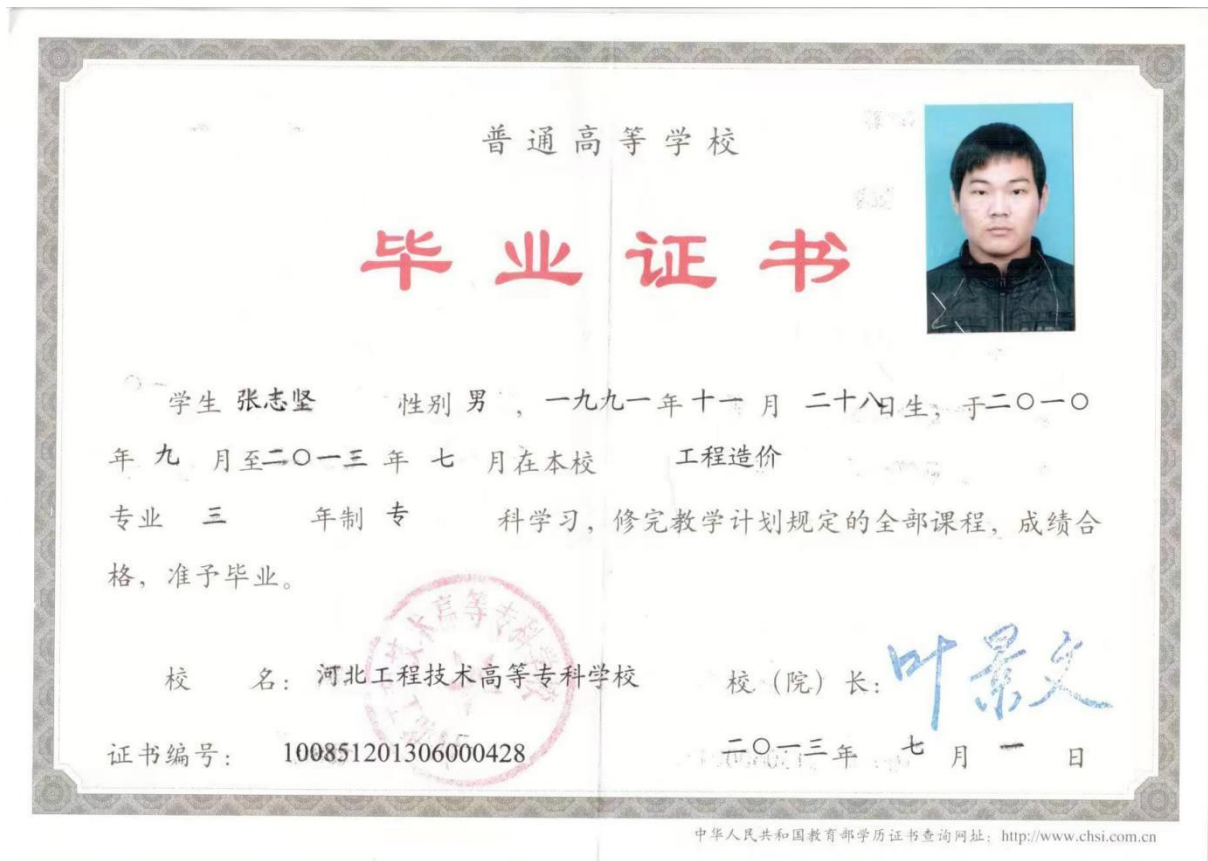 普通高等学校
毕业证书
学生 张志坚 性别 男 ，一九九一年十一月 二十八日生，于二〇一〇
年 九 月至二〇一三 年 七 月在本校 工程造价
专业 三 年制 专 科学习，修完教学计划规定的全部课程，成绩合
格，准予毕业。
校 名：河北工程技术高等专科学校 校（院）长：叶景文
证书编号：100851201306000428 二〇一三年 七 月 一 日
中华人民共和国教育部学历证书查询网址：http://www.chsi.com.cn